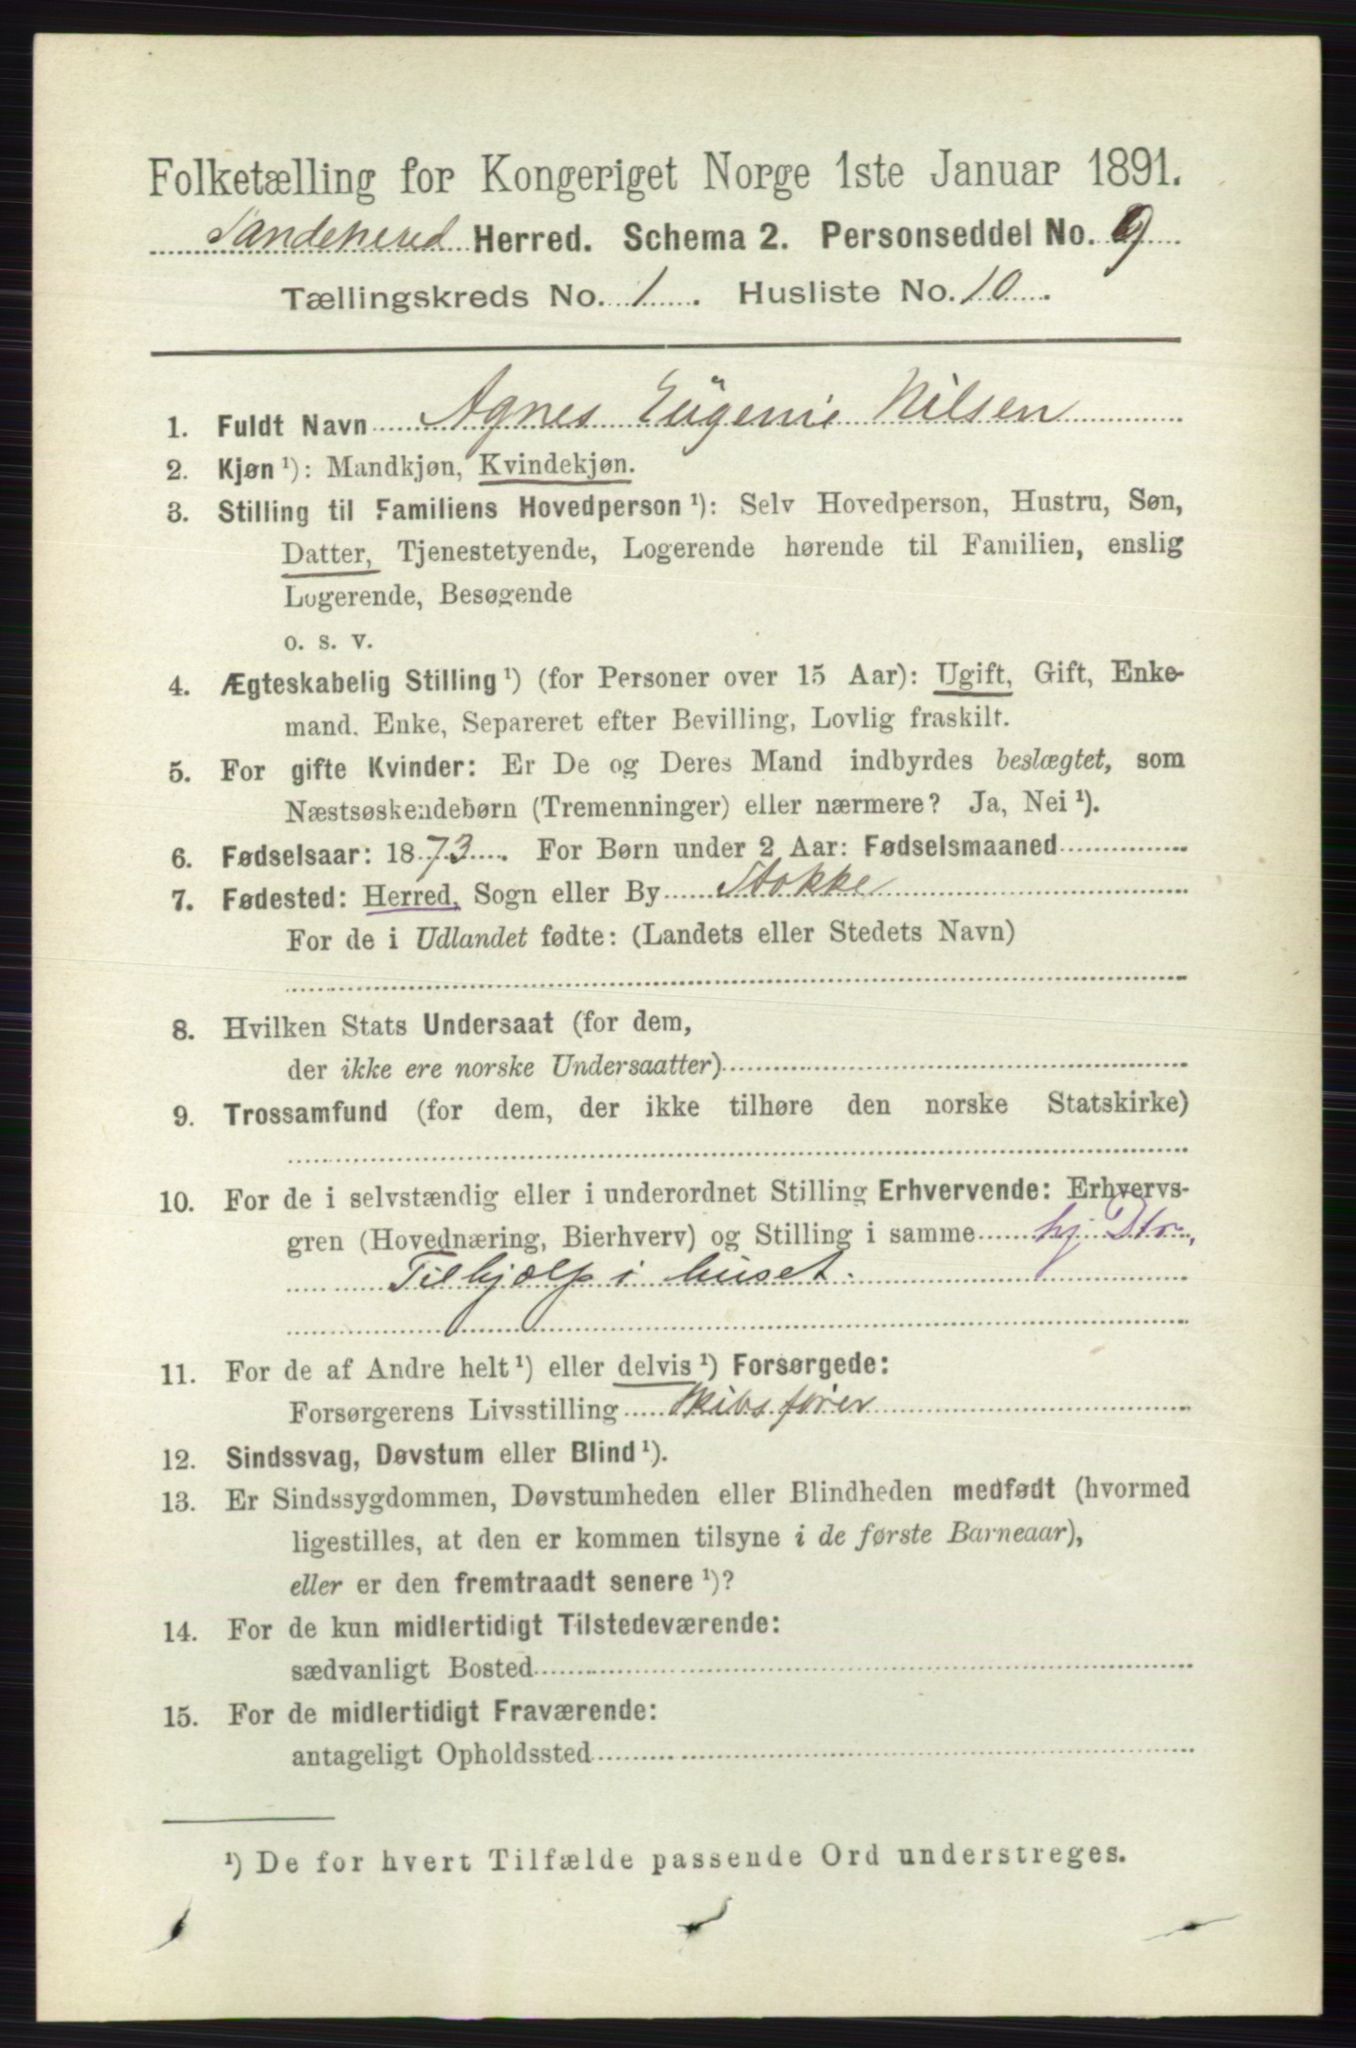 Folketælling for Kongeriget Norge 1ste Januar 1891.
Sandeherred Herred. Schema 2. Personseddel No. 9
Tællingskreds No. 1. Husliste No. 10.
1. Fuldt Navn Agnes Eügenie Nilsen
2. Kjøn ¹): Mandkjøn, Kvindekjøn.
3. Stilling til Familiens Hovedperson ¹): Selv Hovedperson, Hustru, Søn,
Datter, Tjenestetyende, Logerende hørende til Familien, enslig
Logerende, Besøgende
o. s. v.
4. Ægteskabelig Stilling ¹) (for Personer over 15 Aar): Ugift, Gift, Enke-
mand, Enke, Separeret efter Bevilling, Lovlig fraskilt.
5. For gifte Kvinder: Er De og Deres Mand indbyrdes beslægtet, som
Næstsøskendebørn (Tremenninger) eller nærmere? Ja, Nei ¹).
6. Fødselsaar: 1873. For Børn under 2 Aar: Fødselsmaaned
7. Fødested: Herred, Sogn eller By Stokke
For de i Udlandet fødte: (Landets eller Stedets Navn)
8. Hvilken Stats Undersaat (for dem,
der ikke ere norske Undersaatter)
9. Trossamfund (for dem, der ikke tilhøre den norske Statskirke)
10. For de i selvstændig eller i underordnet Stilling Erhvervende: Erhvervs-
gren (Hovednæring, Bierhverv) og Stilling i samme hj. Dtr.
Tilhjælp i huset.
11. For de af Andre helt ¹) eller delvis ¹) Forsørgede:
Forsørgerens Livsstilling Skibsfører
12. Sindssvag, Døvstum eller Blind ¹).
13. Er Sindssygdommen, Døvstumheden eller Blindheden medfødt (hvormed
ligestilles, at den er kommen tilsyne i de første Barneaar),
eller er den fremtraadt senere ¹)?
14. For de kun midlertidigt Tilstedeværende:
sædvanligt Bosted
15. For de midlertidigt Fraværende:
antageligt Opholdssted
¹) De for hvert Tilfælde passende Ord understreges.